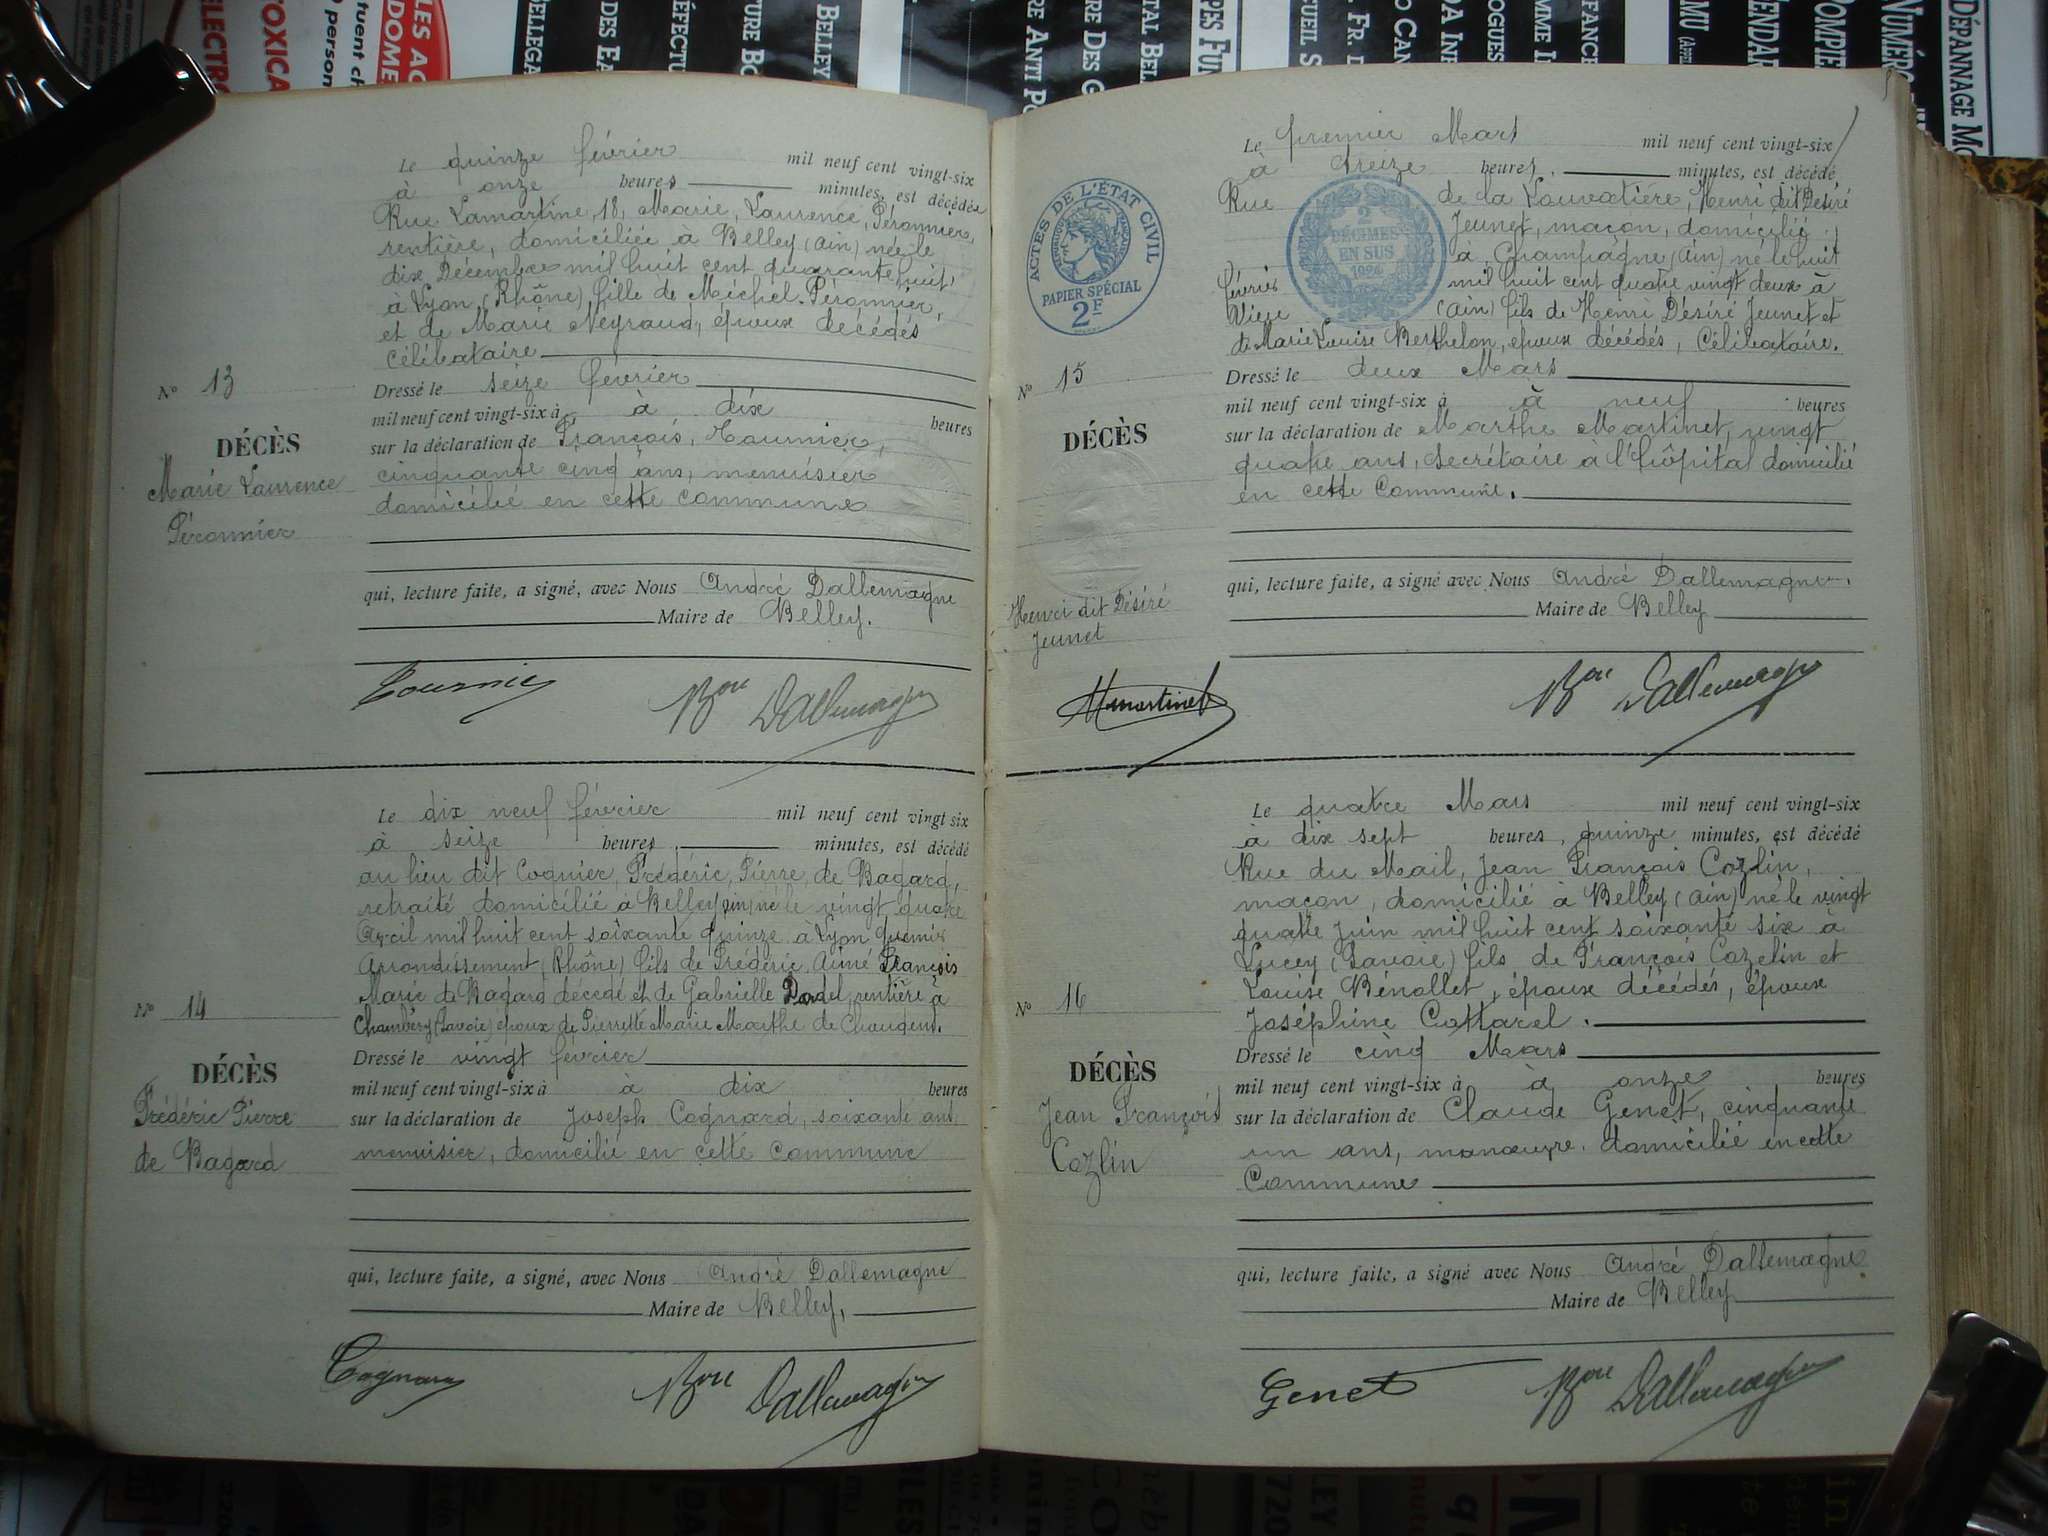 Le quinze février mil neuf cent vingt-six
à onze heures minutes, est décédée
Rue Lamartine, 18, Marie, Laurence, Péronnier,
rentière, domiciliée à Belley (Ain) née le
dix Décembre mil huit cent quarante huit
à Lyon, (Rhône) fille de Michel Péronnier,
et de Marie Neyraud, époux décédés
Célibataire
N° 13
Dressé le seize février
mil neuf cent vingt-six à à dix heures
DÉCÈS
sur la déclaration de François, Tournier,
cinquante cinq ans, menuisier
Marie Laurence
Péronnier
domicilié en cette commune
qui, lecture faite, a signé, avec Nous André Dallemagne
Maire de Belley.
Tournier Bon Dallemagne
Le dix neuf février mil neuf cent vingt-six
à seize heures, minutes, est décédé
au lieu dit Cognier, Frédéric, Pierre, de Bagard,
retraité domicilié à Belley (Ain) né le vingt quatre
Avril mil huit cent soixante quinze à Lyon
Arrondissement (Rhône) fils de Frédéric, Aimé François
Marie de Bagard décédé et de Gabrielle rentière à
Chambéry (Savoie) époux de Pierrette Marie Marthe de
N° 14
Dressé le vingt février
mil neuf cent vingt-six à à dix heures
DÉCÈS
sur la déclaration de Joseph Cognard, soixante ans,
menuisier, domicilié en cette commune
Frédéric Pierre
de Bagard
qui, lecture faite, a signé, avec Nous André Dallemagne
Maire de Belley,
Cognard Bon Dallemagne
Le premier Mars mil neuf cent vingt-six
à treize heures, minutes, est décédé
Rue de la Louvatière, Henri dit Désiré
Jeunet, maçon, domicilié
à Champagne (Ain) né le huit
février mil huit cent quatre vingt deux à
Vieu (Ain) fils de Henri Désiré Jeunet et
de Marie Louise Berthelon, époux décédés, Célibataire.
ACTES DE L'ÉTAT CIVIL
PAPIER SPÉCIAL
2F
2
DÉCIMES
EN SUS
N° 15
Dressé le deux Mars
mil neuf cent vingt-six à à neuf heures
DÉCÈS
sur la déclaration de Marthe Martinet, vingt
quatre ans, secrétaire à l'hôpital domicilié
en cette Commune.
Henri dit Désiré
Jeunet
qui, lecture faite, a signé avec Nous André Dallemagne.
Maire de Belley
MMartinet Bon Dallemagne
Le quatre Mars mil neuf cent vingt-six
à dix sept heures, quinze minutes, est décédé
Rue du Mail, Jean François Cozlin,
maçon, domicilié à Belley (Ain) né le vingt
quatre juin mil huit cent soixante six à
Lucey (Savoie) fils de François Cozelin et
Louise Bénollet, époux décédés, époux
Joséphine Cottarel.
N° 16
Dressé le cinq Mars
mil neuf cent vingt-six à à onze heures
DÉCÈS
sur la déclaration de Claude Genet, cinquante
un ans, manœuvre, domicilié en cette
Commune
Jean François
Cozlin
qui, lecture faite, a signé avec Nous André Dallemagne
Maire de Belley
Genet Bon Dallemagne